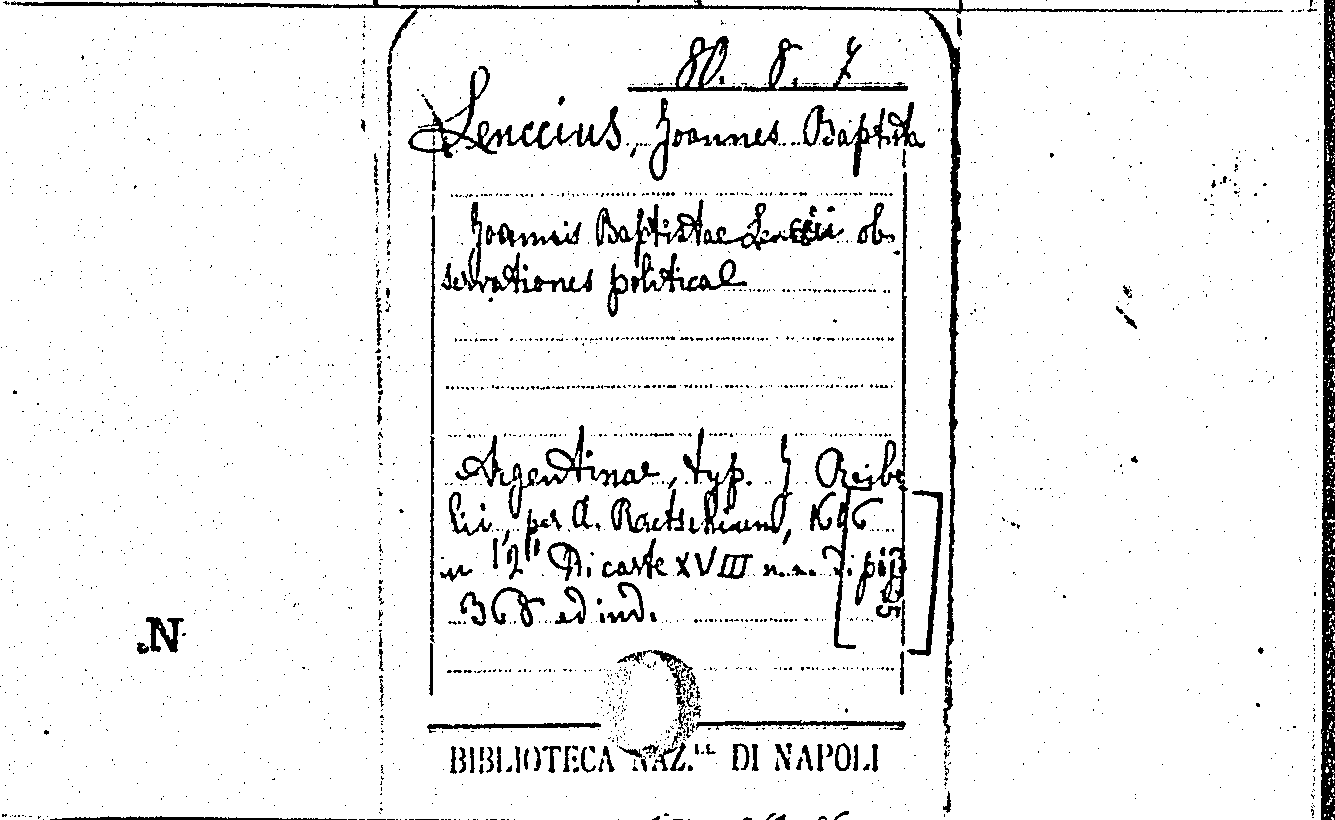 80. 8. 7
Lenccius, Joannes Baptista
Joannis Baptistae Lenccii ob-
servationes political
Argentinae, typ. J Reibe
lii, per A. Raetschium, 1696
in 12° Di carte XVIII n.n. e pp
368 ed ind.
N
BIBLIOTECA NAZ.LE DI NAPOLI